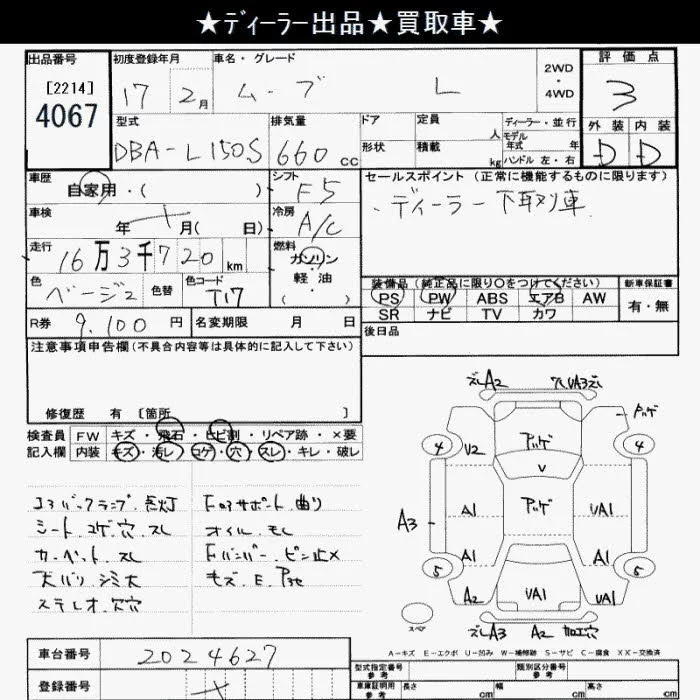 ★ディーラー出品★買取車★
出品番号 初度登録年月 車名・グレード 2WD・4WD 評価点
[2214] 4067 17 2月 ムーブ L 3
型式 排気量 ドア 定員 人 ディーラー・並行 外装 内装
DBA-L150S 660cc 形状 積載 kg モデル年式 年 ハンドル 左・右 D D
車歴 自家用・( ) シフト F5 セールスポイント (正常に機能するものに限ります)
車検 年 月( 日) 冷房 A/C ・ディーラー下取車
走行 16万3千720km 燃料 ガソリン・軽油・( )
色 ベージ2 色替 色コード T17 装備品 (純正品に限り○をつけてください) 新車保証書
PS PW ABS エアB AW 有・無
SR ナビ TV カワ
R券 9,100円 名変期限 月 日 後日品
注意事項申告欄(不具合内容等は具体的に記入して下さい)
修復歴 有 〔箇所 〕
検査員記入欄 FW キズ・飛石・ヒビ割・リペア跡・×要
内装 キズ・汚レ・コゲ・穴・スレ・キレ・破レ
コーションランプ
シート.コゲ穴.スレ Fロアサポート.曲り
カーペット.スレ オイル.モレ
天バリ.シミ大 Fバンパー.ピン止メ
ステレオ.穴穴
A2
ハゲ
4 U2 ハゲ 4
V
A3 A1 ハゲ UA1
A1 A1
5 A2 UA1 UA1 5
スペア A3 A2 加工穴
A-キズ E-エクボ U-凹み W-補修跡 S-サビ C-腐食 XX-交換済
車台番号 2024627 型式指定番号 参考 類別区分番号 参考
登録番号 車庫証明用 参考 長さ cm 幅 cm 高さ cm